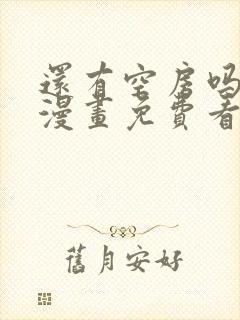 還有空房吗
漫畫免費看
舊月安好